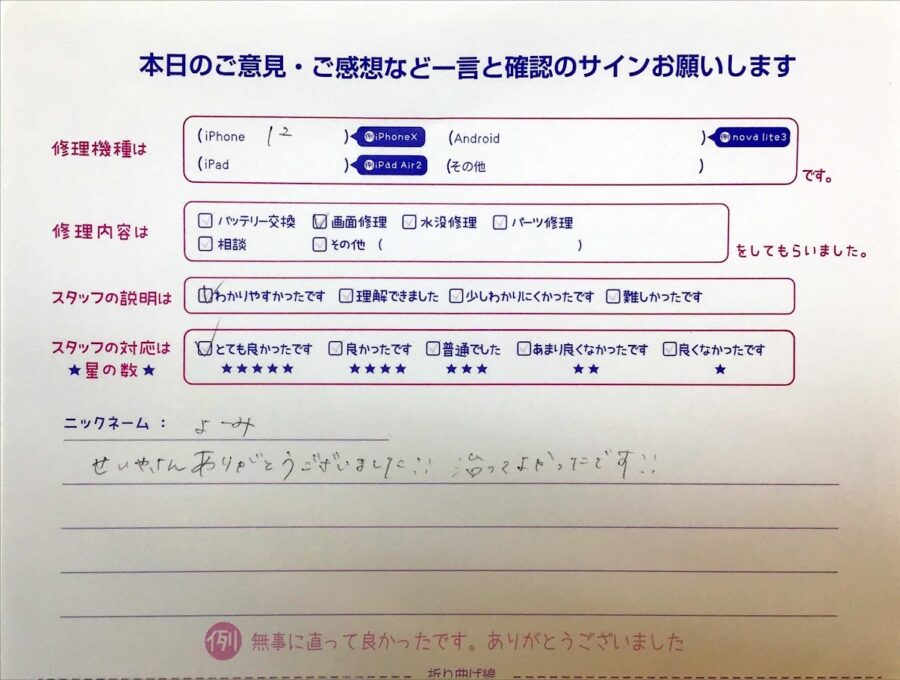 本日のご意見・ご感想など一言と確認のサインお願いします
修理機種は (iPhone 12 ) 例iPhoneX (Android ) 例nova lite3
(iPad ) 例iPad Air2 (その他 ) です。
修理内容は バッテリー交換 画面修理 水没修理 パーツ修理
相談 その他 ( ) をしてもらいました。
スタッフの説明は わかりやすかったです 理解できました 少しわかりにくかったです 難しかったです
スタッフの対応は とても良かったです 良かったです 普通でした あまり良くなかったです 良くなかったです
★星の数★ ★★★★★ ★★★★ ★★★ ★★ ★
ニックネーム： よーみ
せいやさんありがとうございました!! 治ってよかったです!!
例 無事に直って良かったです。ありがとうございました
折り曲げ線